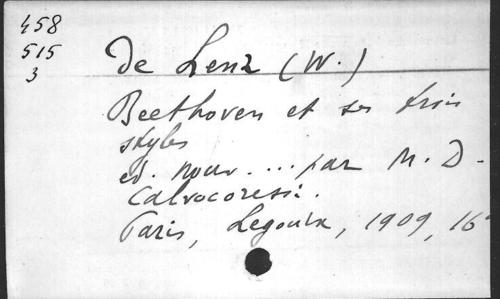 458
515
3
De Lenz (W.)
Beethoven et ses trois
styles
ed. nouv. ... par M. D.
Calvocoressi.
Paris, Legouix, 1909, 16°